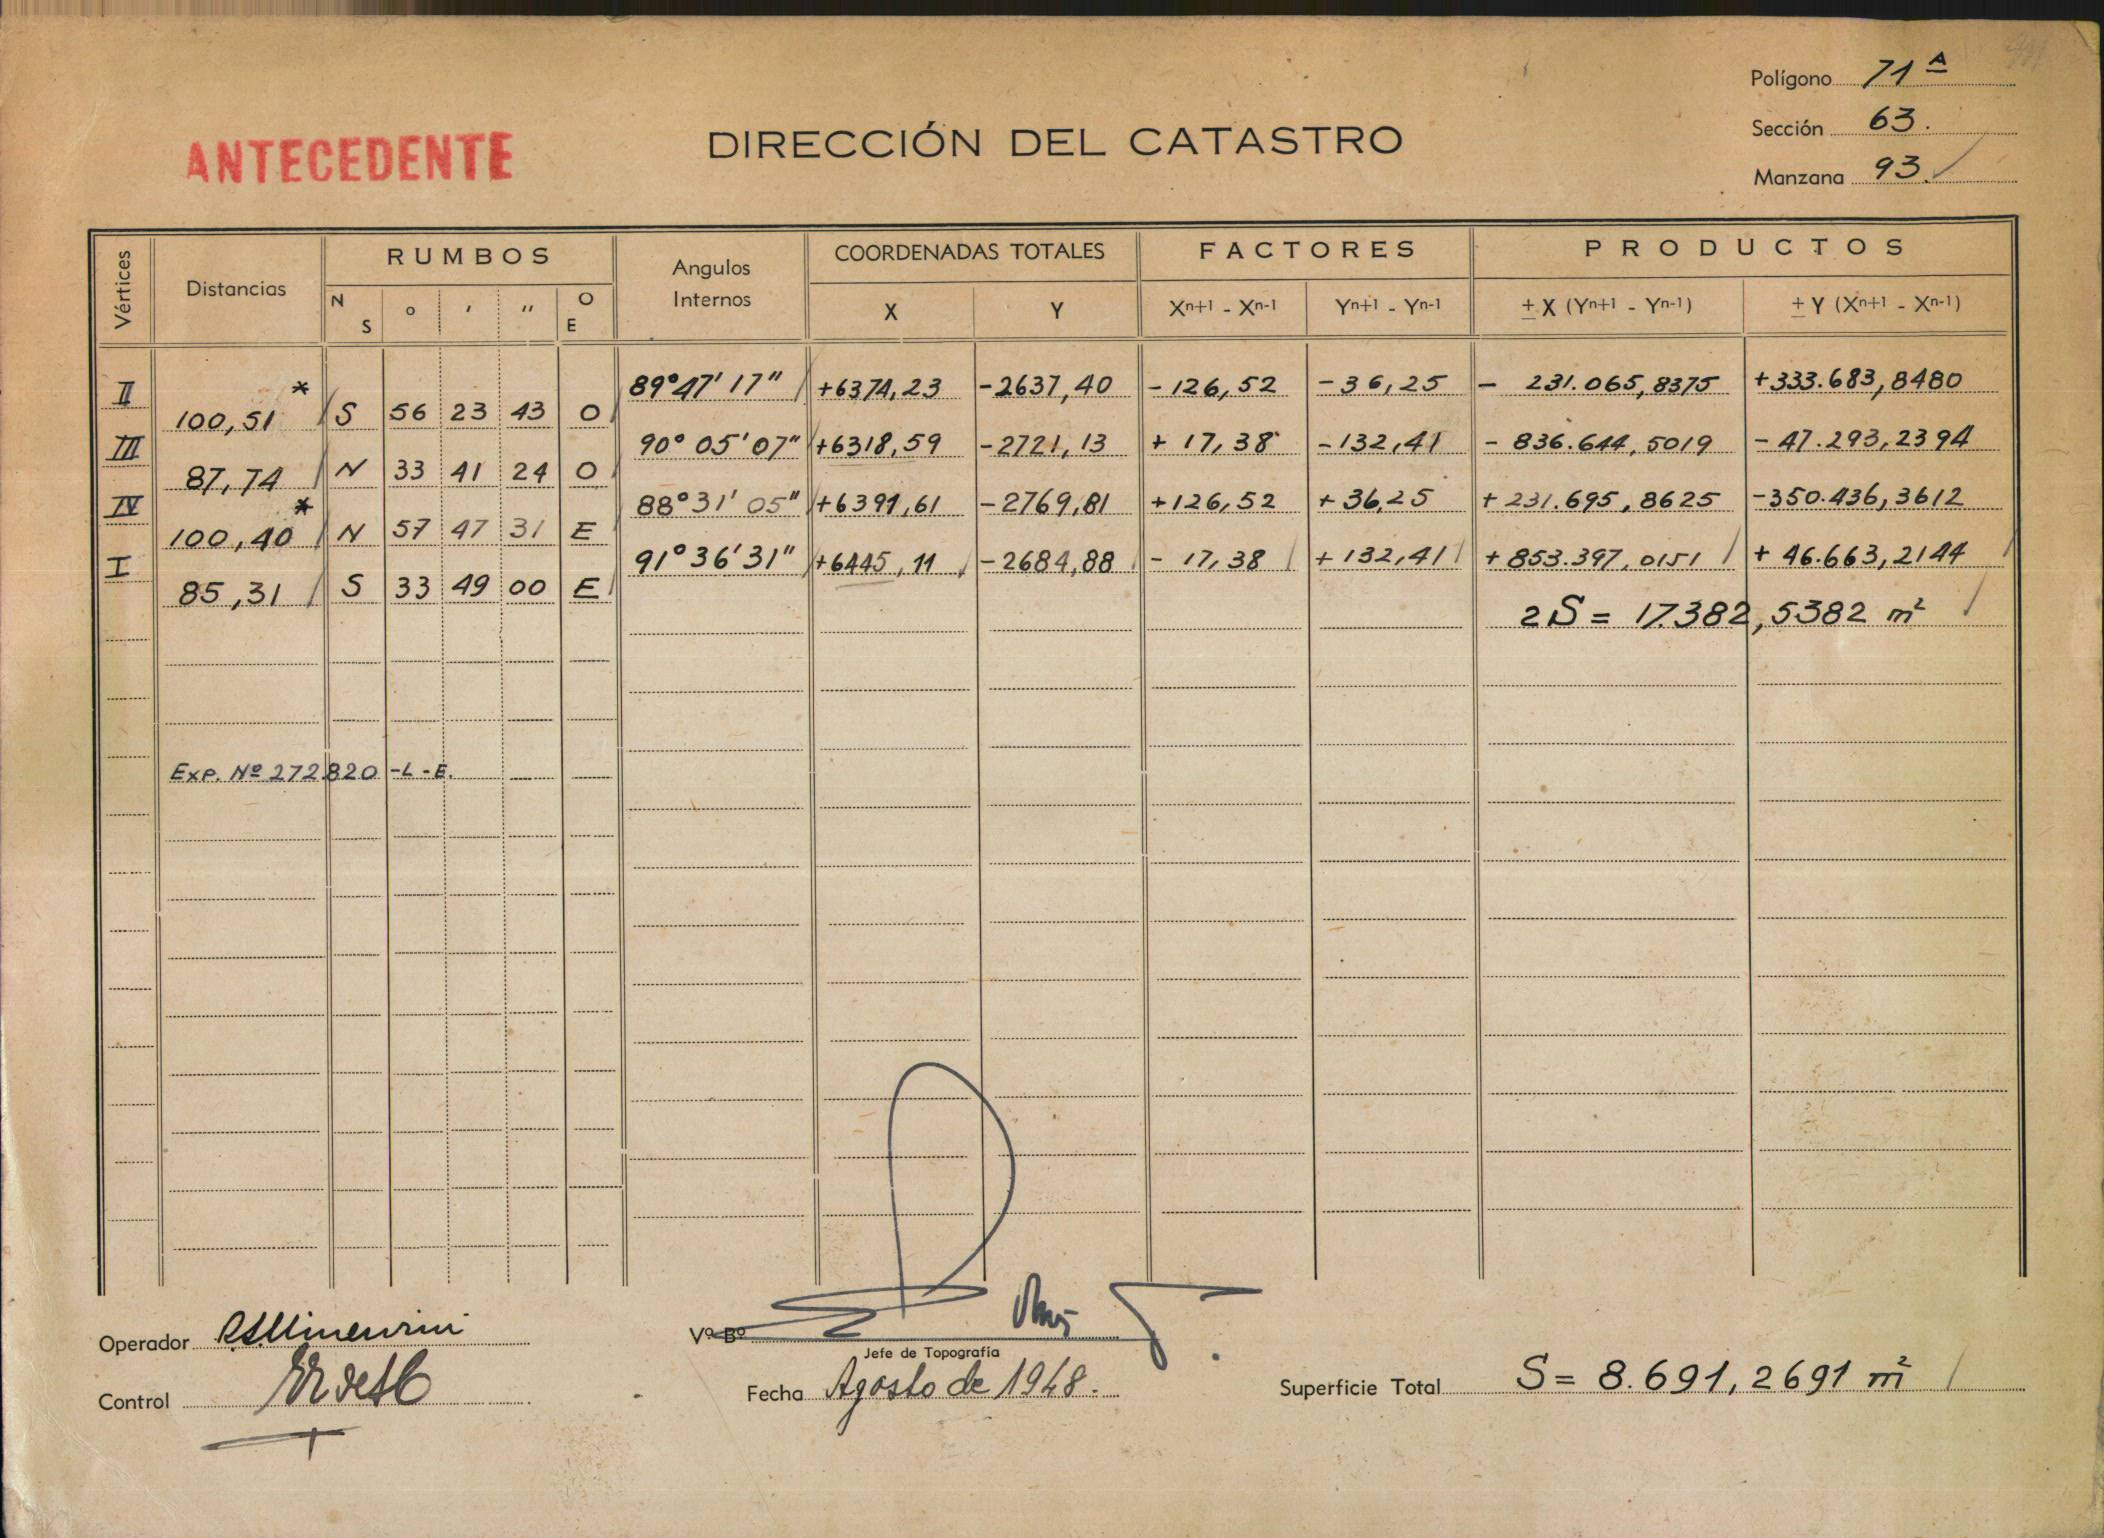 Polígono 71ᴬ
ANTECEDENTE
DIRECCIÓN DEL CATASTRO
Sección 63.
Manzana 93.
Vértices Distancias RUMBOS Angulos Internos COORDENADAS TOTALES FACTORES PRODUCTOS
N S ° ′ ″ O E X Y Xn+1 - Xn-1 Yn+1 - Yn-1 ± X (Yn+1 - Yn-1) ± Y (Xn+1 - Xn-1)
II * 89°47'17" +6374,23 -2637,40 -126,52 -36,25 - 231.065,8375 +333.683,8480
100,51 S 56 23 43 O
III 90°05'07" +6318,59 -2721,13 + 17,38 -132,41 - 836.644,5019 - 47.293,2394
87,74 N 33 41 24 O
IV * 88°31'05" +6391,61 -2769,81 +126,52 +36,25 + 231.695,8625 -350.436,3612
100,40 N 57 47 31 E
I 91°36'31" +6445,11 -2684,88 - 17,38 +132,41 +853.397,0151 + 46.663,2144
85,31 S 33 49 00 E
2S = 17.382,5382 m²
Exp. Nº 272.820 -L-E.
Operador
Vº Bº
Jefe de Topografía
Control
Fecha Agosto de 1948.
Superficie Total S = 8.691,2691 m²